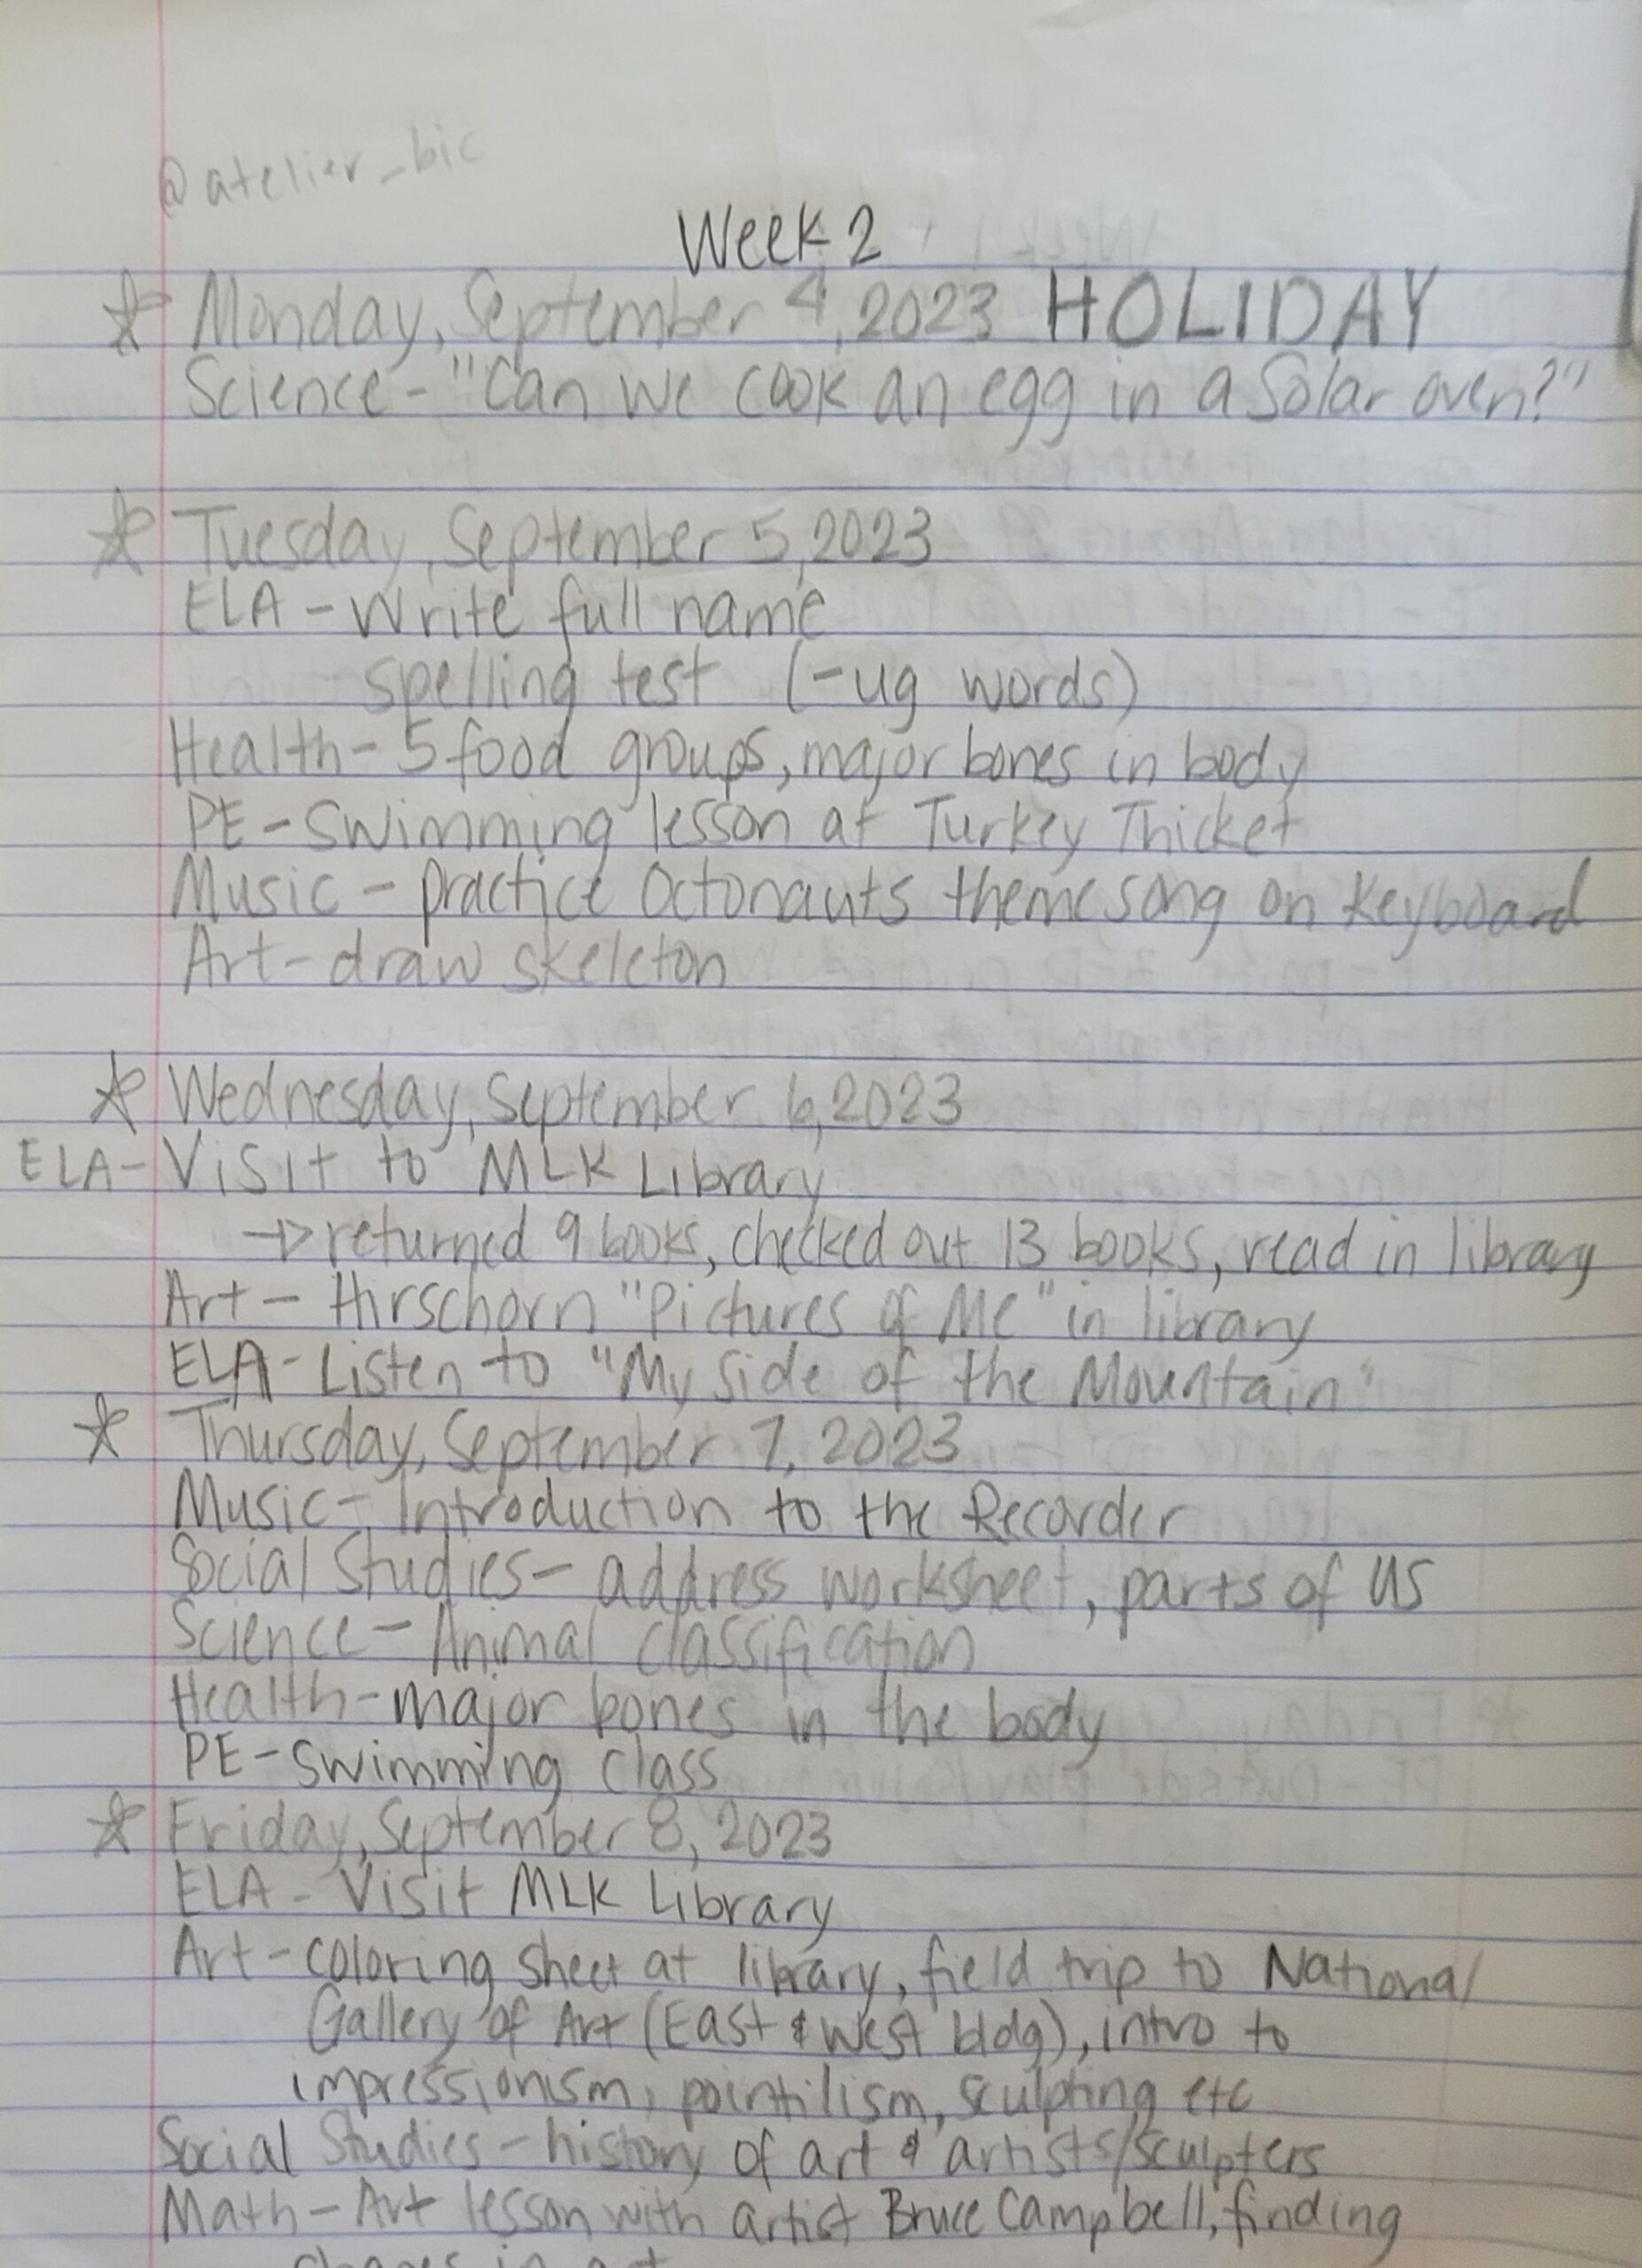 @atelier_bic
Week 2
☆ Monday, September 4, 2023 HOLIDAY
Science - "Can we cook an egg in a Solar oven?"
☆ Tuesday, September 5, 2023
ELA - Write full name
spelling test (-ug words)
Health - 5 food groups, major bones in body
PE - Swimming lesson at Turkey Thicket
Music - practice Octonauts theme song on Keyboard
Art - draw skeleton
☆ Wednesday, September 6, 2023
ELA - Visit to MLK Library
→ returned 9 books, checked out 13 books, read in library
Art - Hirschorn "Pictures of Me" in library
ELA - Listen to "My Side of the Mountain"
☆ Thursday, September 7, 2023
Music - Introduction to the Recorder
Social Studies - address worksheet, parts of US
Science - Animal classification
Health - major bones in the body
PE - swimming class
☆ Friday, September 8, 2023
ELA - Visit MLK Library
Art - coloring sheet at library, field trip to National
Gallery of Art (East & West bldg), intro to
impressionism, pointilism, sculpting etc
Social Studies - history of art & artists/sculpters
Math - Art lesson with artist Bruce Campbell, finding
shapes in art